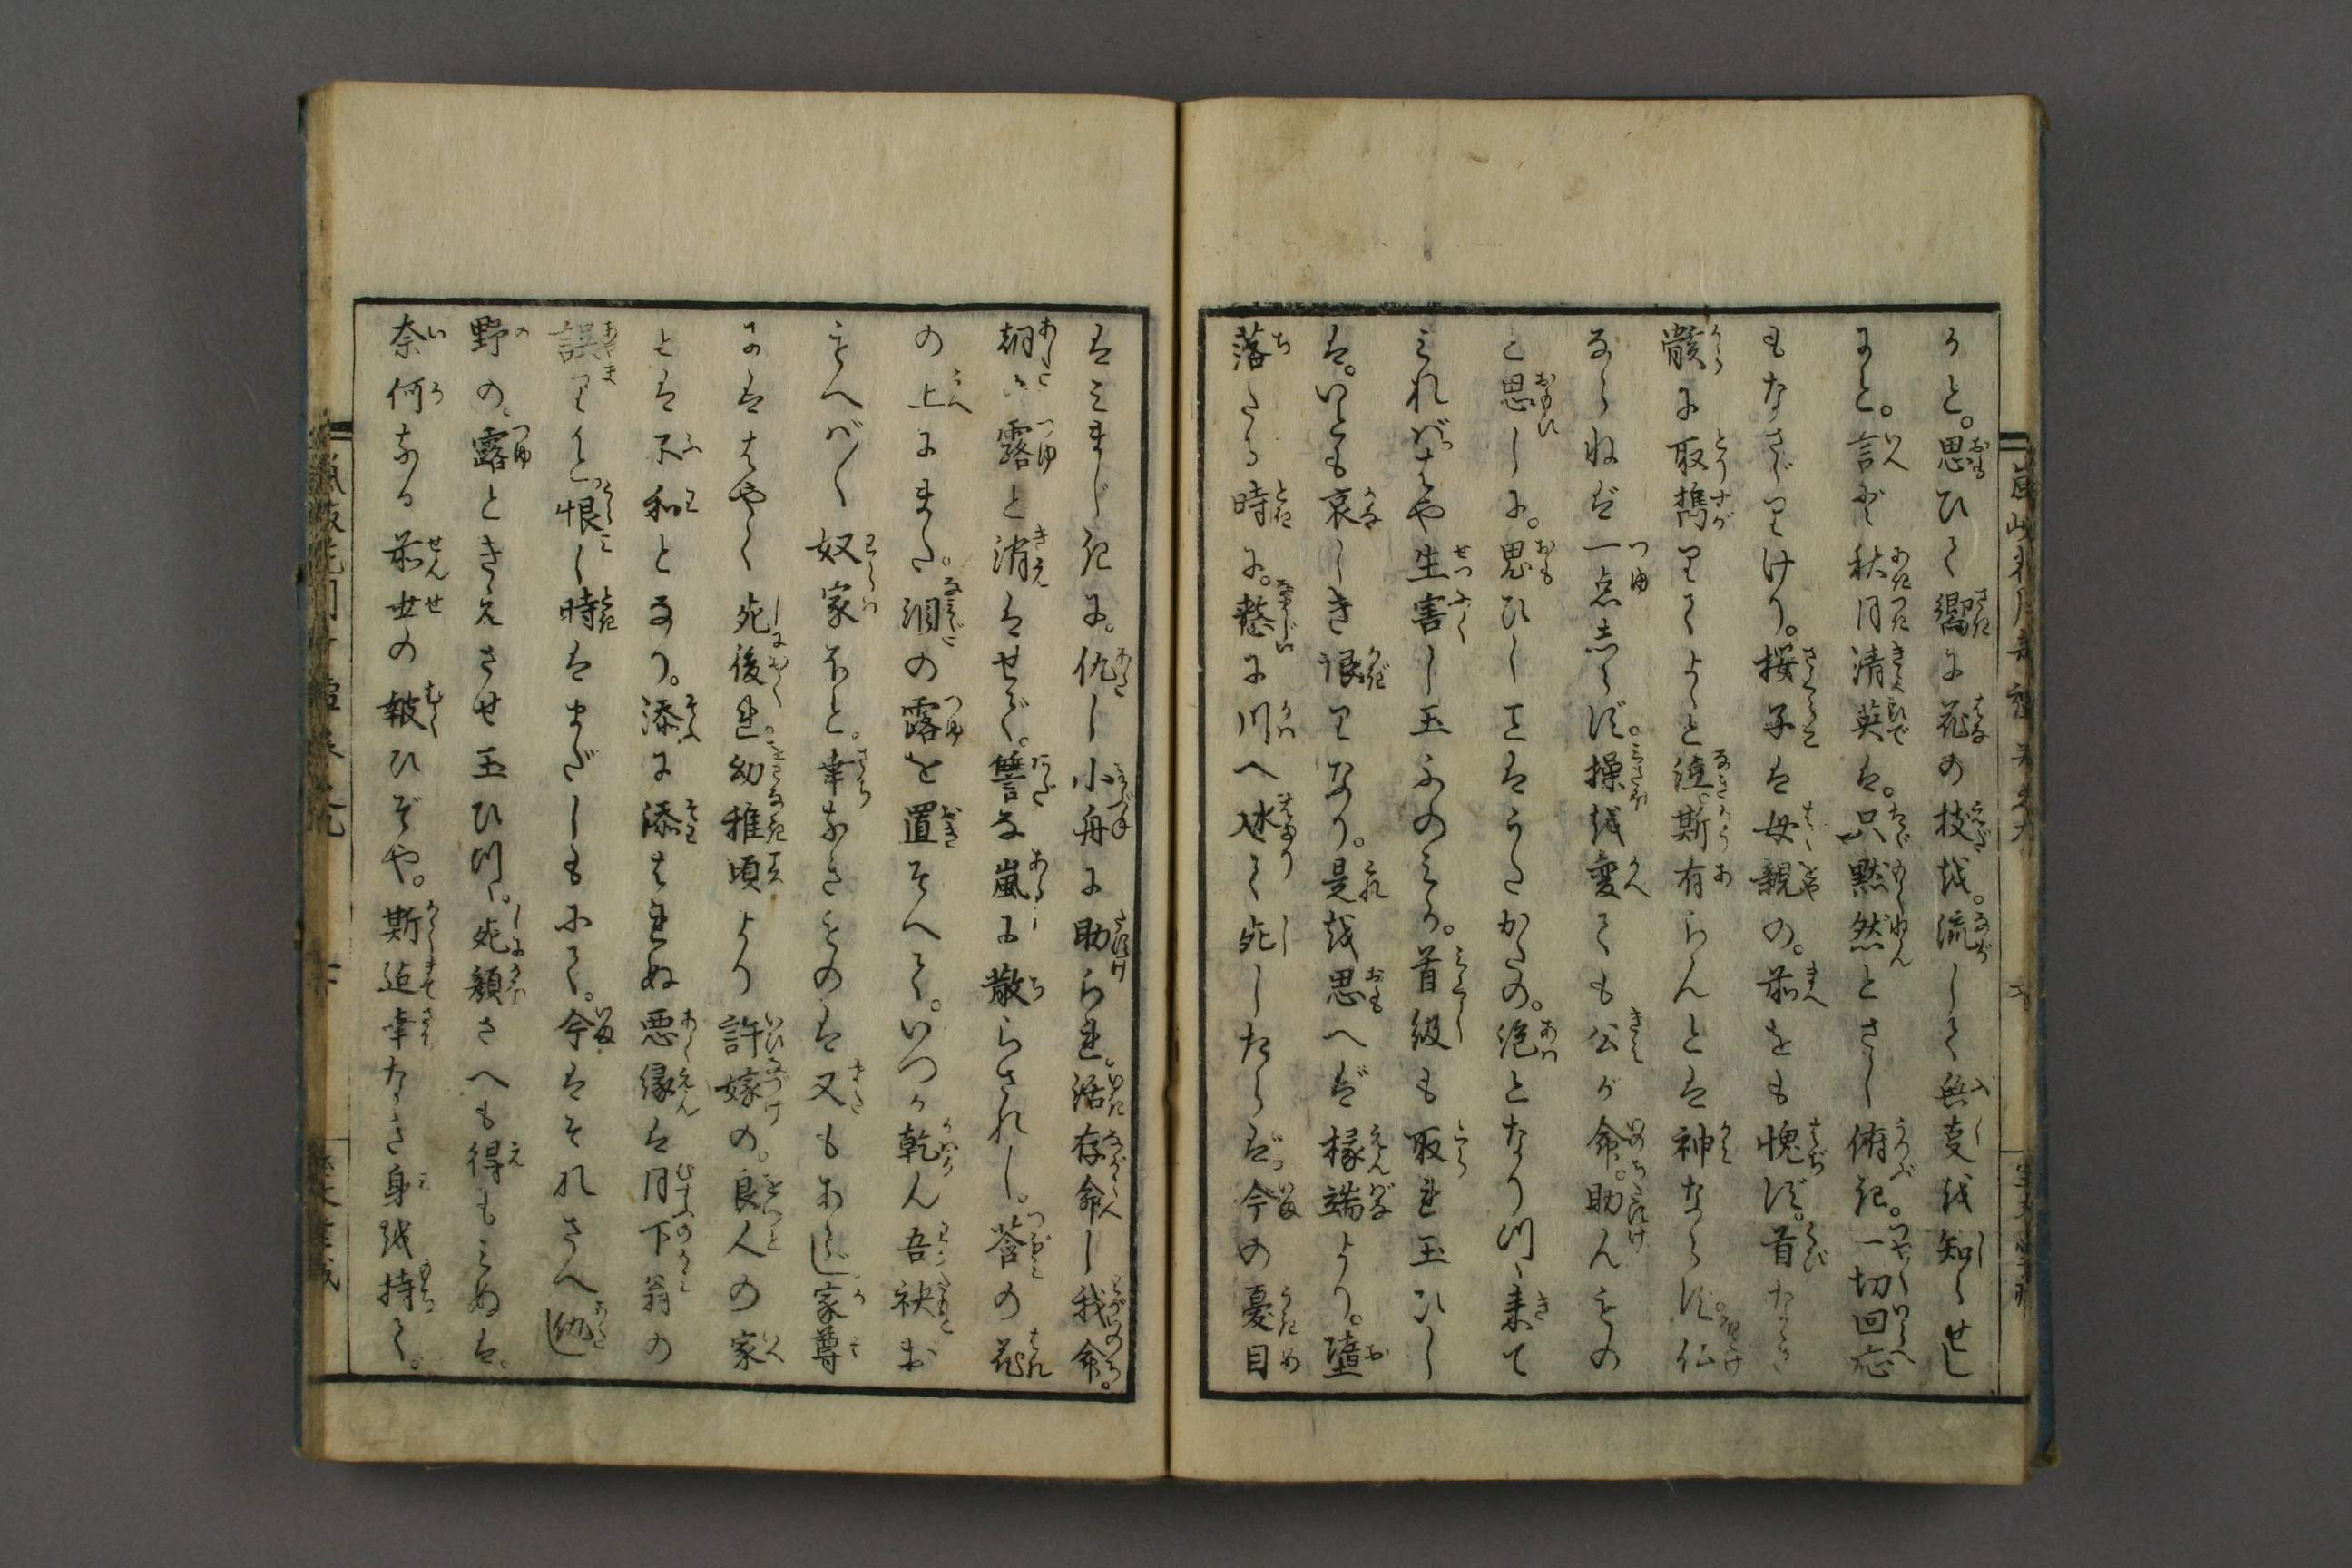 うと。思ひて嚮に花の枝を。流して無変を知らせし
にと。言ど秋月清英は。只黙然とさし俯き。一切回応
もなさざりけり。桜子は母親の。前をも愧ず。首なき
骸に取携りてよゝと泣。斯有らんとは神ならず。仏
ならねば一点しらず。操を変ても公が命。助んものと
思ひしに。思ひし叓はうたかたの。泡となりつゝ来て
みれば。はや生害し玉ふのみか。首級も取れ玉ひし
は。いとも哀しき恨みなり。是を思へば椽端より。墮
落たる時に。憖に川へ沈て死したらば。今の憂目
はみまじきに。仇し小舟に助られ。活存命し我命。
朝は露と消はせで。讐な嵐に散らされし。莟の花
の上にまた。涙の露を置そへて。いつか乾ん吾袂お
もへば〳〵奴家ほど。幸なきものは又もあらじ家尊
にははやく死後れ。幼稚頃より許嫁の。良人の家
とは不和となり。添に添はれぬ悪縁は月下翁の
誤りと。恨し時はまだしもにて。今はそれさへ仇
野の。露ときえさせ玉ひつ。死顔さへも得もみぬは。
奈何なる前世の報ひぞや。斯迄幸なき身を持て。